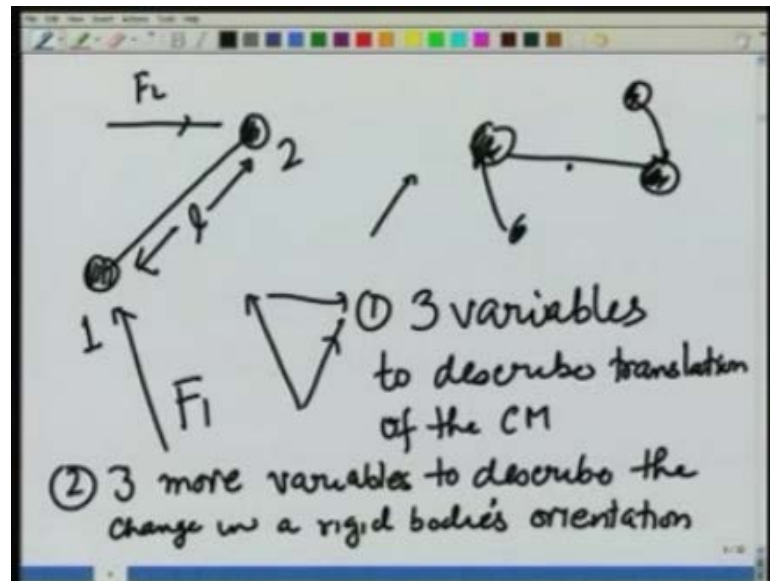 F2
2
l
1
F1
① 3 variables
to describe translation
of the CM
② 3 more variables to describe the
change in a rigid bodie's orientation